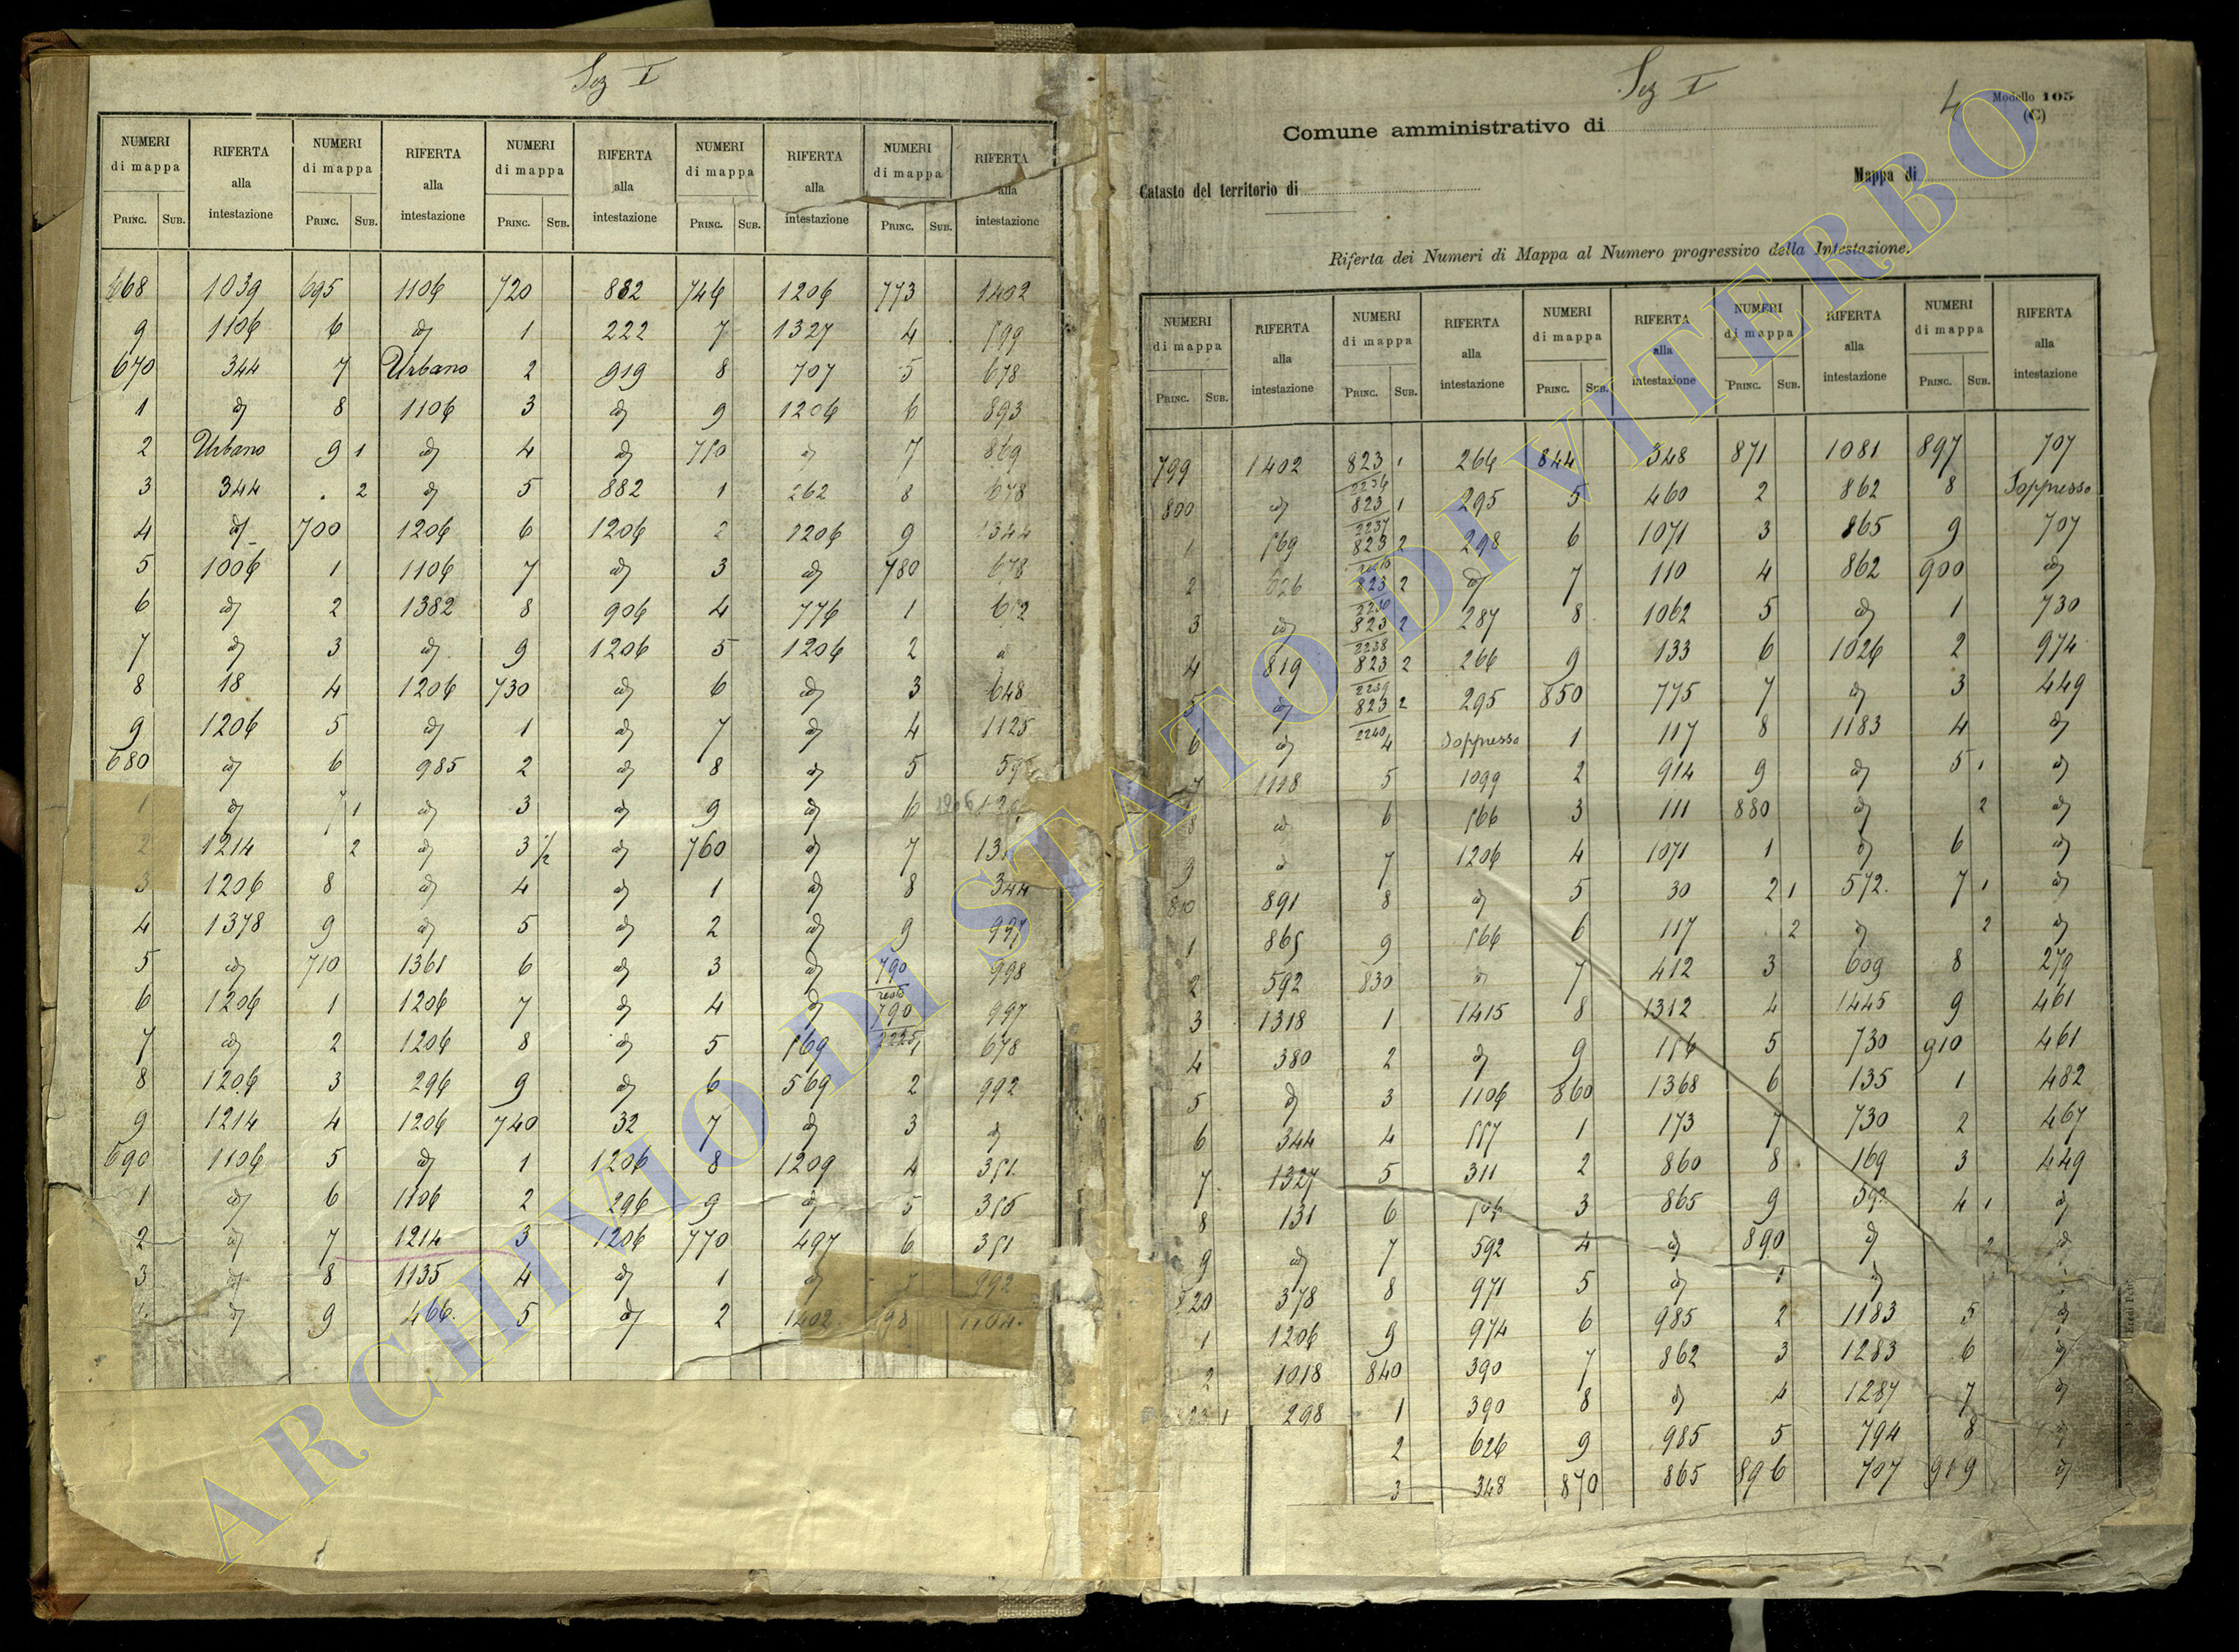 Sez I
NUMERI di mappa RIFERTA alla intestazione NUMERI di mappa RIFERTA alla intestazione NUMERI di mappa RIFERTA alla intestazione NUMERI di mappa RIFERTA alla intestazione NUMERI di mappa RIFERTA alla intestazione
PRINC. SUB. PRINC. SUB. PRINC. SUB. PRINC. SUB. PRINC. SUB.
668 1039 695 1106 720 882 746 1206 773 1402
9 1106 6 id 1 222 7 1327 4 599
670 344 7 Urbano 2 919 8 707 5 678
1 id 8 1106 3 id 9 1206 6 893
2 Urbano 9 1 id 4 id 750 id 7 869
3 344 2 id 5 882 1 262 8 678
4 id 700 1206 6 1206 2 1206 9 1344
5 1006 1 1106 7 id 3 id 780 678
6 id 2 1382 8 906 4 776 1
7 id 3 id 9 1206 5 1206 2
8 18 4 1206 730 id 6 id 3 648
9 1206 5 id 1 id 7 id 4 1125
680 id 6 985 2 id 8 id 5
1 id 7 1 id 3 id 9 id 6
2 1214 2 id 3 1/2 id 760 id 7
3 1206 8 id 4 id 1 id 8 344
4 1378 9 id 5 id 2 id 9 997
5 id 710 1361 6 id 3 id 790 resto 998
6 1206 1 1206 7 id 4 id 790 2225 997
7 id 2 1206 8 id 5 569 1 678
8 1206 3 296 9 id 6 569 2 992
9 1214 4 1206 740 32 7 id 3 id
690 1106 5 id 1 1206 8 1209 4 351
1 id 6 1106 2 296 9 id 5 356
2 id 7 1214 3 1206 770 497 6 351
3 id 8 1135 4 id 1 id 7 992
4 id 9 466 5 id 2 1402 98 1104
Sez I
4
Modello 105
(C)
Comune amministrativo di
Catasto del territorio di
Mappa di
Riferta dei Numeri di Mappa al Numero progressivo della Intestazione.
NUMERI di mappa RIFERTA alla intestazione NUMERI di mappa RIFERTA alla intestazione NUMERI di mappa RIFERTA alla intestazione NUMERI di mappa RIFERTA alla intestazione NUMERI di mappa RIFERTA alla intestazione
PRINC. SUB. PRINC. SUB. PRINC. SUB. PRINC. SUB. PRINC. SUB.
799 1402 823 2236 1 266 844 348 871 1081 897 707
800 id 823 2237 1 295 5 460 2 862 8 Soppresso
1 569 823 resto 2 298 6 1071 3 865 9 707
2 626 823 2236 2 id 7 110 4 862 900 id
3 id 823 2238 2 287 8 1062 5 id 1 730
4 819 823 2239 2 266 9 133 6 1026 2 974
5 id 823 2240 2 295 850 775 7 id 3 449
6 id 4 Soppresso 1 117 8 1183 4 id
7 1118 5 1099 2 914 9 id 5 1 id
8 id 6 566 3 111 880 id 2 id
9 id 7 1206 4 1071 1 id 6 id
810 891 8 id 5 30 2 1 572 7 1 id
1 865 9 566 6 117 2 id 2 id
2 592 830 id 7 412 3 609 8 279
3 1318 1 1415 8 1312 4 1445 9 461
4 380 2 id 9 156 5 730 910 461
5 id 3 1106 860 1368 6 135 1 482
6 344 4 557 1 173 7 730 2 467
7 1327 5 311 2 860 8 169 3 449
8 131 6 3 865 9 592 4 1 id
9 id 7 592 4 id 890 id 2 id
820 378 8 971 5 id 1 id
1 1206 9 974 6 985 2 1183 5 id
2 1018 840 390 7 862 3 1283 6 id
823 1 298 1 390 8 id 4 1287 7 id
2 626 9 985 5 794 8 id
3 348 870 865 896 707 919 id
ARCHIVIO DI STATO DI VITERBO